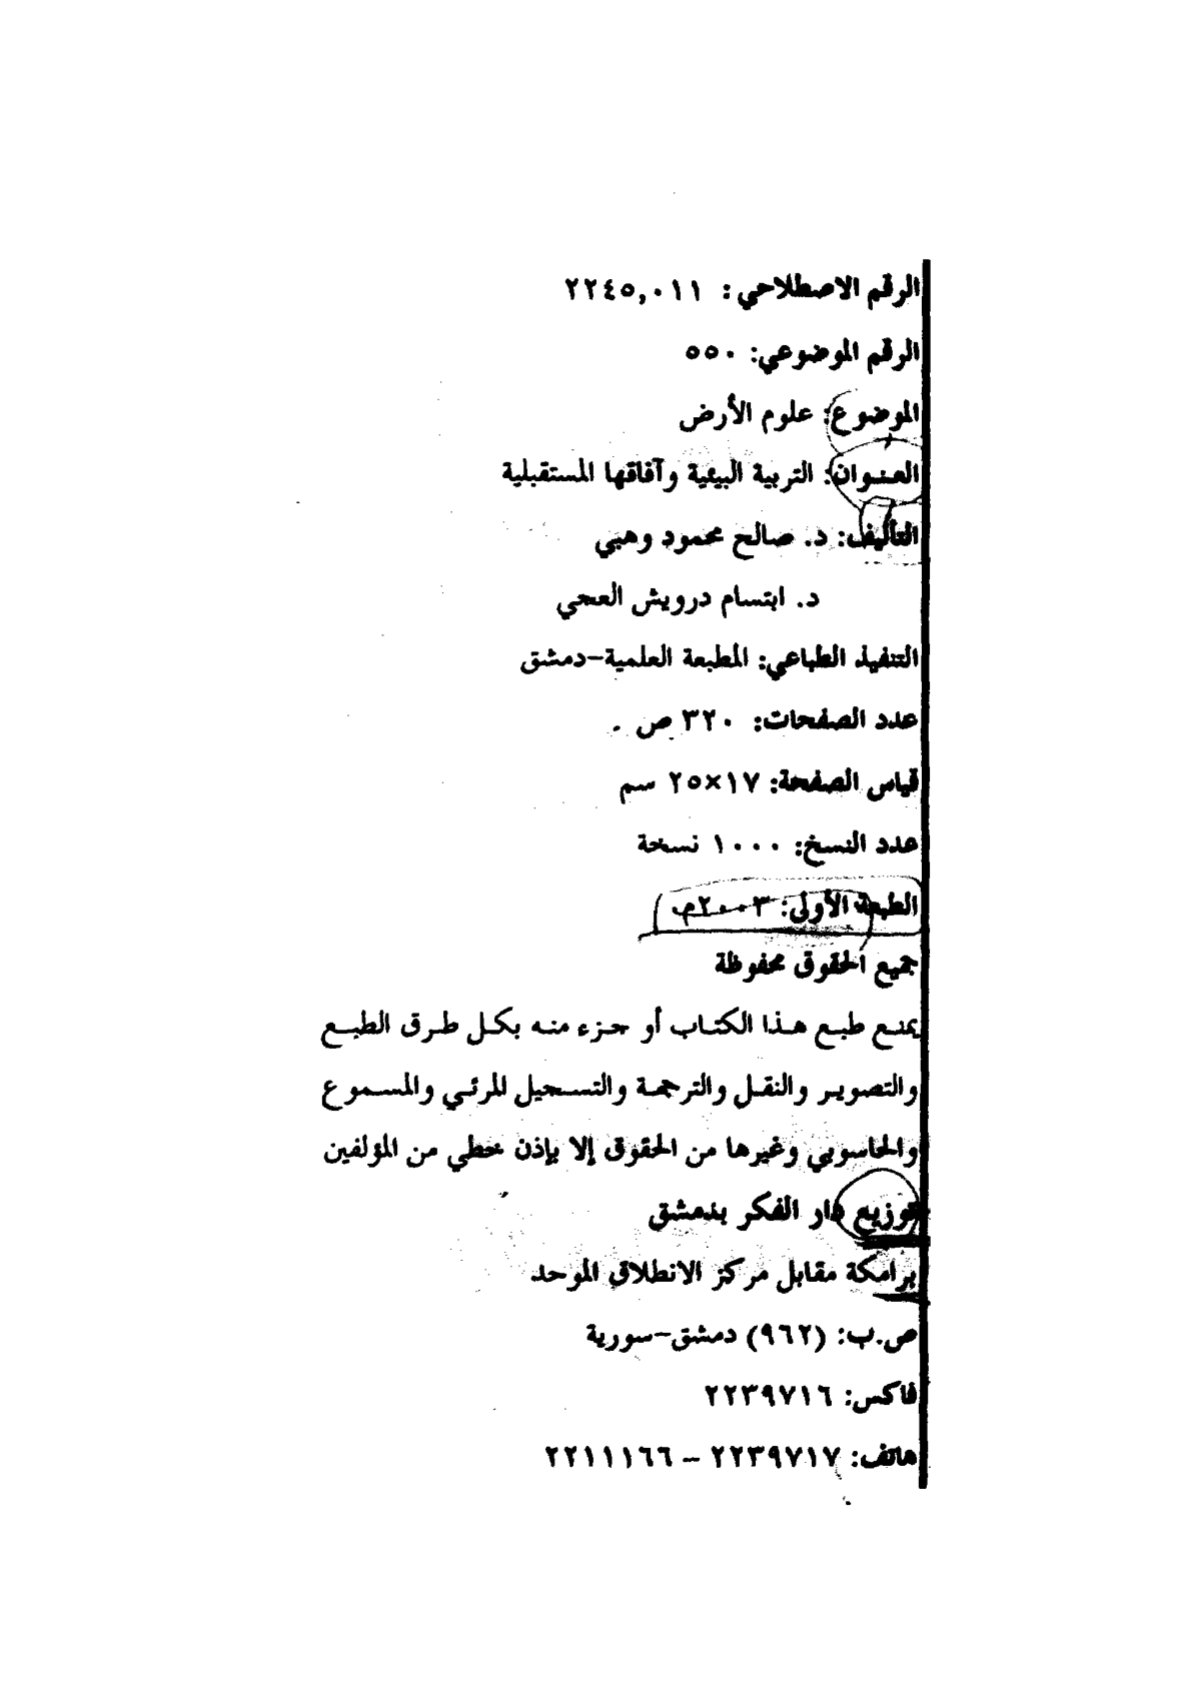 الرقم الاصطلاحي: ٢٢٤٥,٠١١
الرقم الموضوعي: ٥٥٠
الموضوع: علوم الأرض
العنوان: التربية البيئية وآفاقها المستقبلية
التأليف: د. صالح محمود وهبي
د. ابتسام درويش العجي
التنفيذ الطباعي: المطبعة العلمية-دمشق
عدد الصفحات: ٣٢٠ ص
قياس الصفحة: ١٧×٢٥ سم
عدد النسخ: ١٠٠٠ نسخة
الطبعة الأولى: ٢٠٠٣م
جميع الحقوق محفوظة
يمنع طبع هذا الكتاب أو جزء منه بكل طرق الطبع
والتصوير والنقل والترجمة والتسجيل المرئي والمسموع
والحاسوبي وغيرها من الحقوق إلا بإذن خطي من المؤلفين
توزيع دار الفكر بدمشق
برامكة مقابل مركز الانطلاق الموحد
ص.ب: (٩٦٢) دمشق-سورية
فاكس: ٢٢٣٩٧١٦
هاتف: ٢٢٣٩٧١٧ - ٢٢١١١٦٦